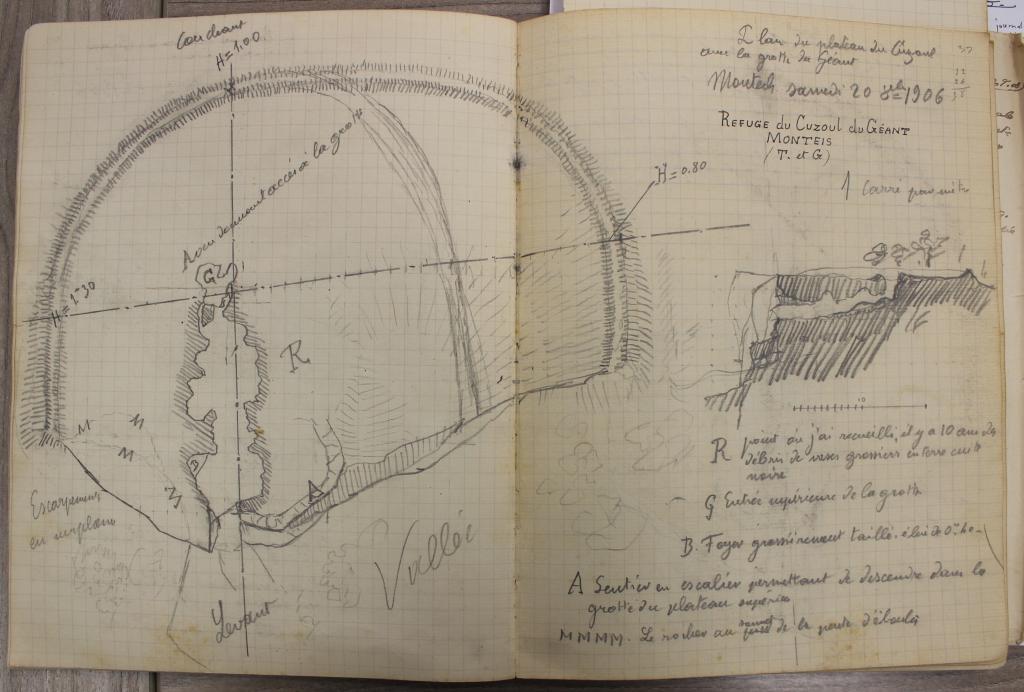 Couchant
H = 1.00
Aven donnant accès à la grotte
G
H = 1m30
R
M
M
M
M
A
Escarpement
en surplomb
Vallée
Levant
Plan du plateau du Cuzoul
avec la grotte du Géant
Monteils samedi 20 8bre 1906
REFUGE du CUZOUL du GÉANT
MONTEIS
(T. et G)
H = 0.80
1 Carré par mètre
10
R point où j'ai recueilli, il y a 10 ans des
débris de vases grossiers en terre cuite
noire
G Entrée supérieure de la grotte
B. Foyer grossièrement taillé
A Sentier en escalier permettant de descendre dans la
grotte du plateau supérieur
MMMM. Le rocher au sommet de la pente d'éboulis
journal